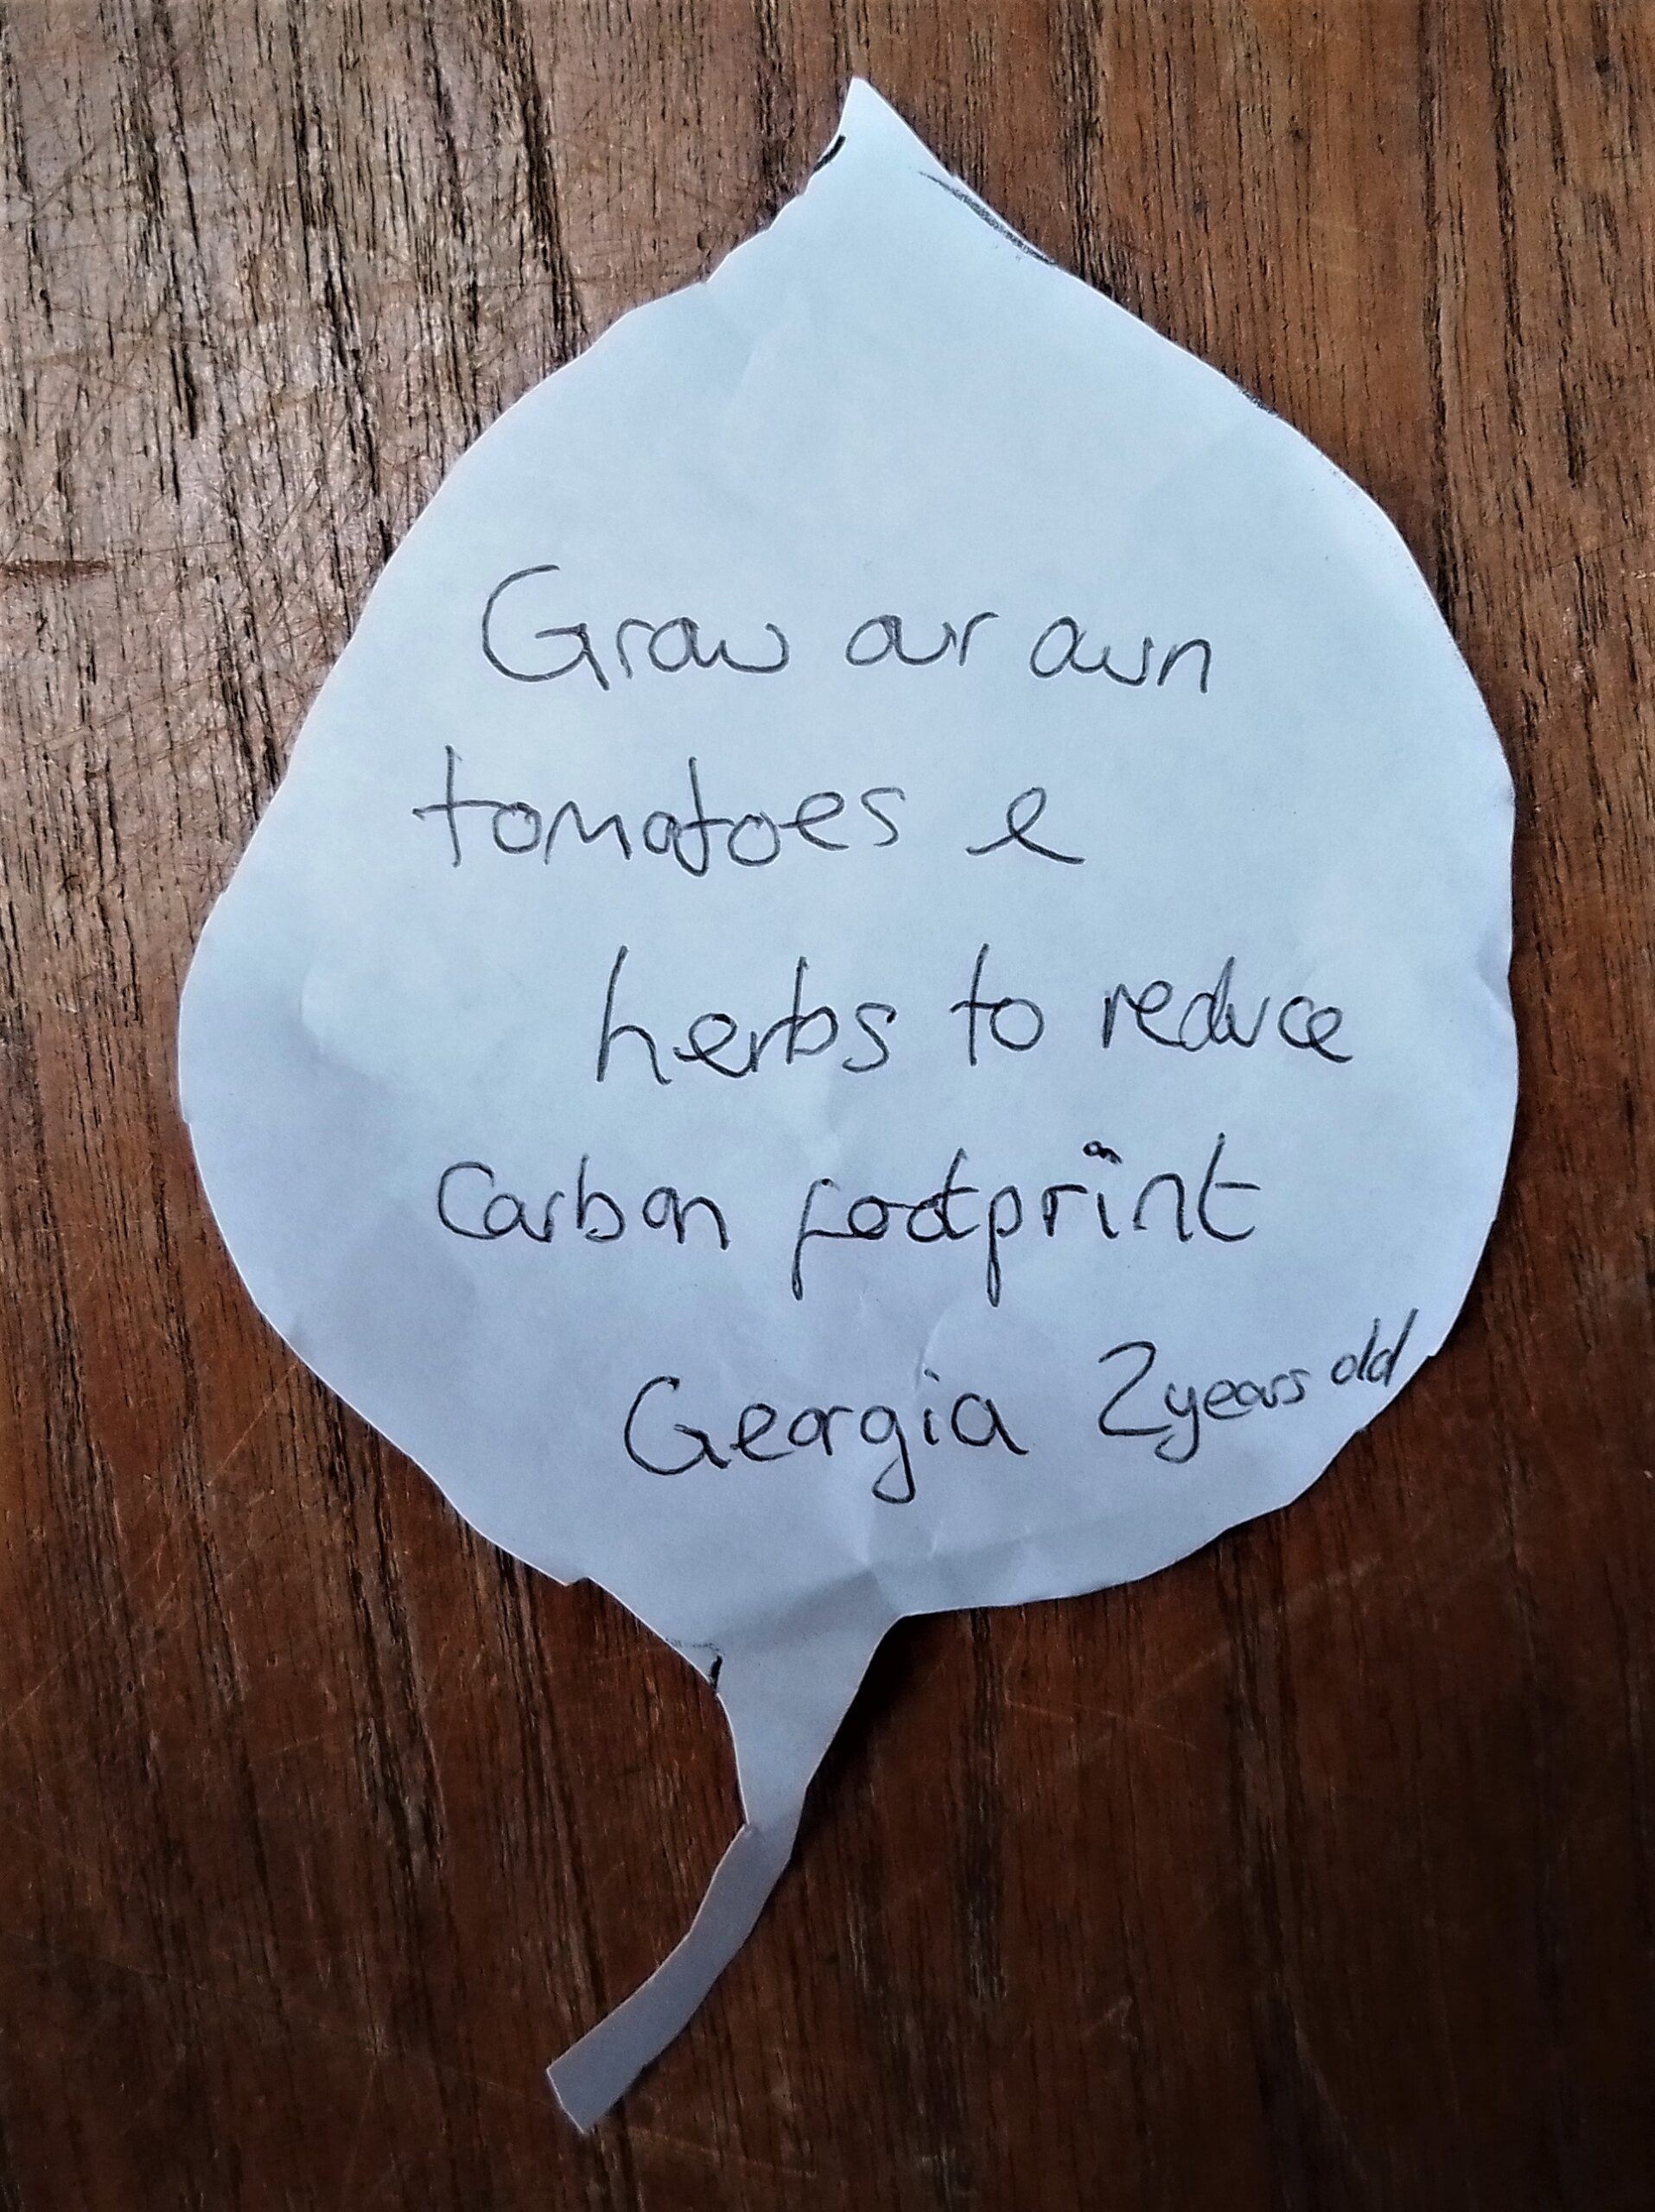 Grow our own
tomatoes &
herbs to reduce
Carbon footprint
Georgia 2 years old